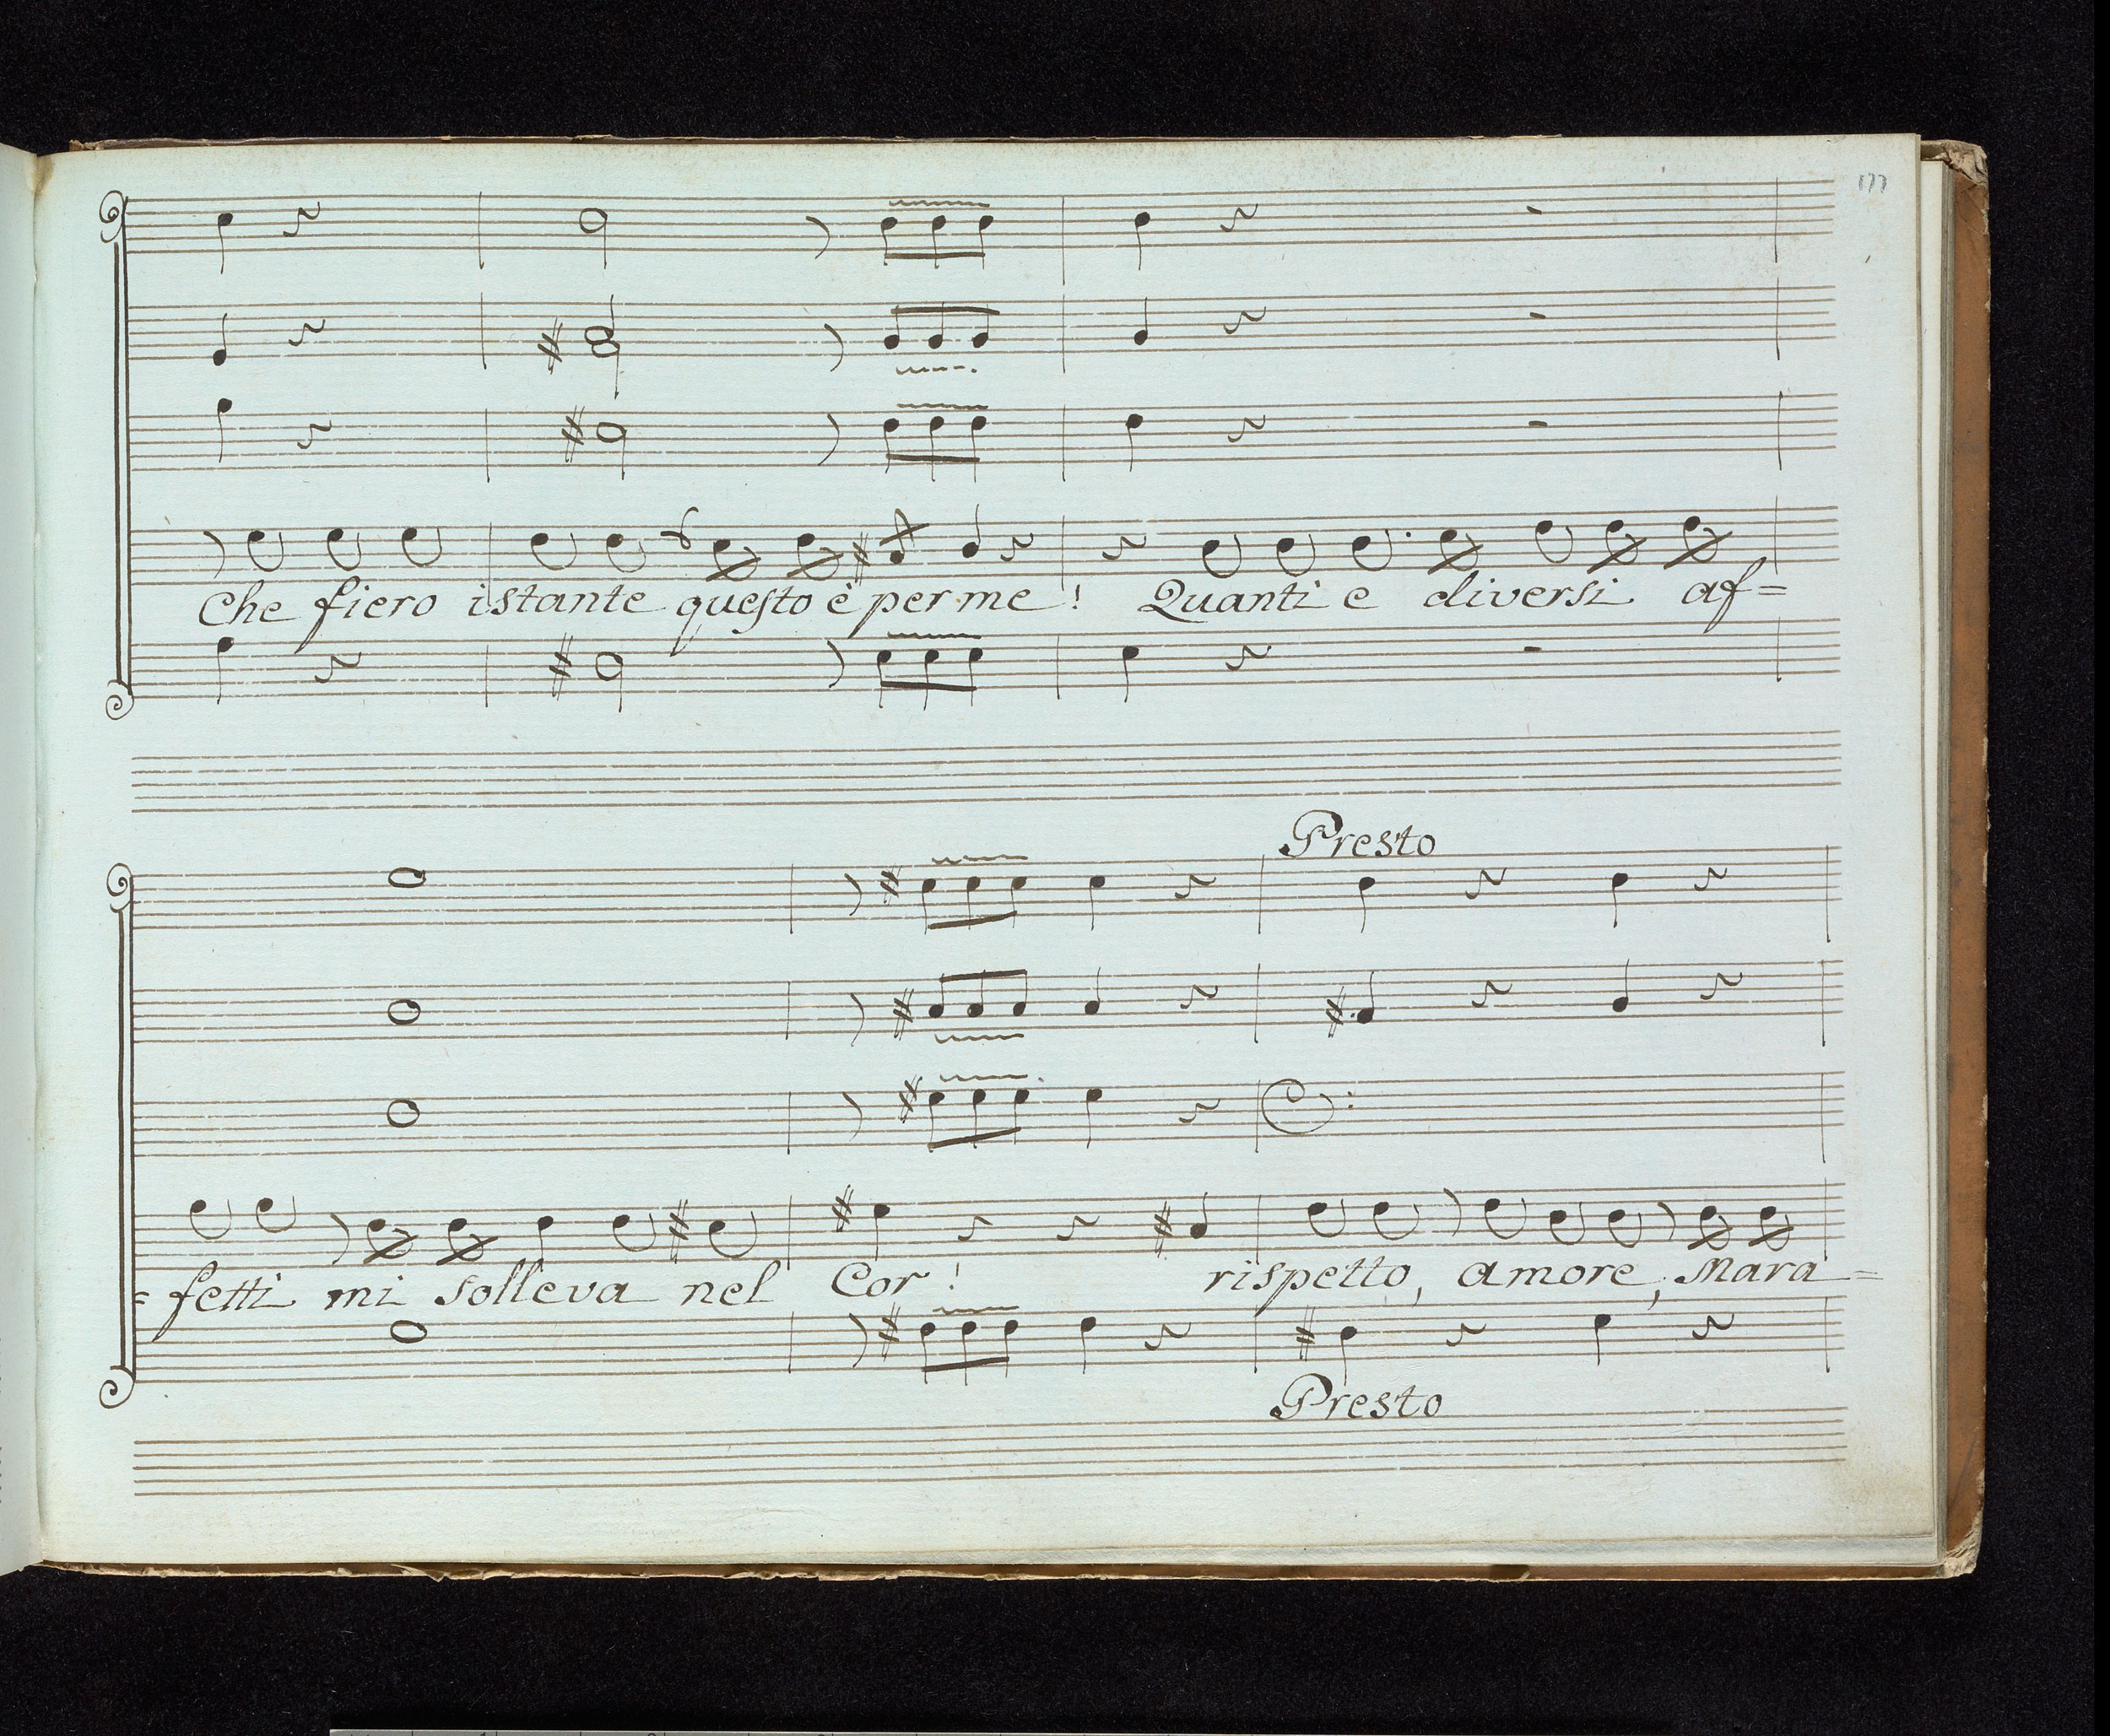 177
Che fiero istante questo è per me! Quanti e diversi af=
Presto
=fetti mi solleva nel Cor! rispetto, amore, Mara=
Presto